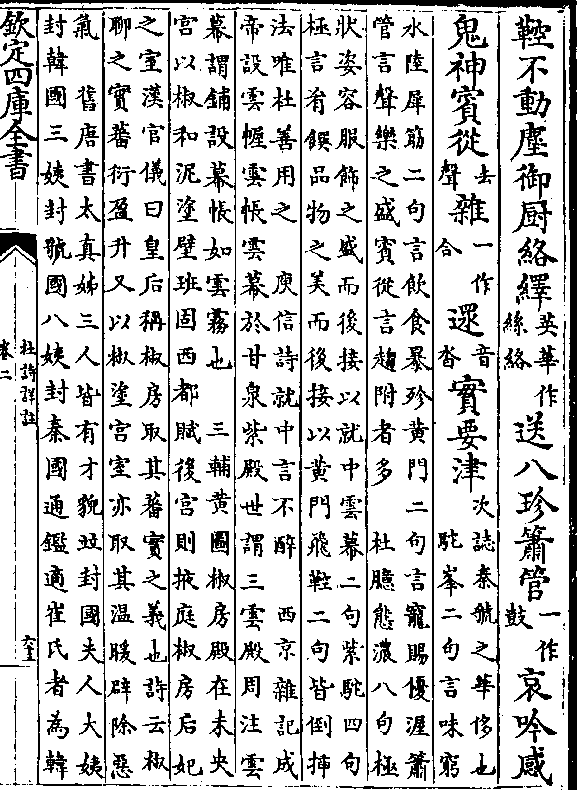 鞚不動塵御厨絡繹英華作絲絡送八珍簫管一作鼓哀吟感
鬼神賓從去聲雜一作合遝音沓實要津次誌秦虢之華侈也駝峯二句言味窮
水陸犀筯二句言飲食暴殄黄門二句言寵賜優渥簫
管言聲樂之盛賓從言趨附者多 杜臆態濃八句極
狀姿容服飾之盛而後接以就中雲幕二句紫駝四句
極言肴饌品物之美而後接以黄門飛鞚二句皆倒挿
法唯杜善用之 庾信詩就中言不醉 西京雜記成
帝設雲幄雲帳雲幕於甘泉紫殿世謂三雲殿周注雲
幕謂鋪設幕帳如雲霧也 三輔黄圖椒房殿在未央
宮以椒和泥塗壁班固西都賦後宮則掖庭椒房后妃
之室漢官儀曰皇后稱椒房取其蕃實之義也詩云椒
聊之實蕃衍盈升又以椒塗宮室亦取其温暖辟除惡
氣 舊唐書太真姊三人皆有才貌竝封國夫人大姨
封韓國三姨封虢國八姨封秦國通鑑適崔氏者為韓
欽定四庫全書
杜詩詳註
卷二